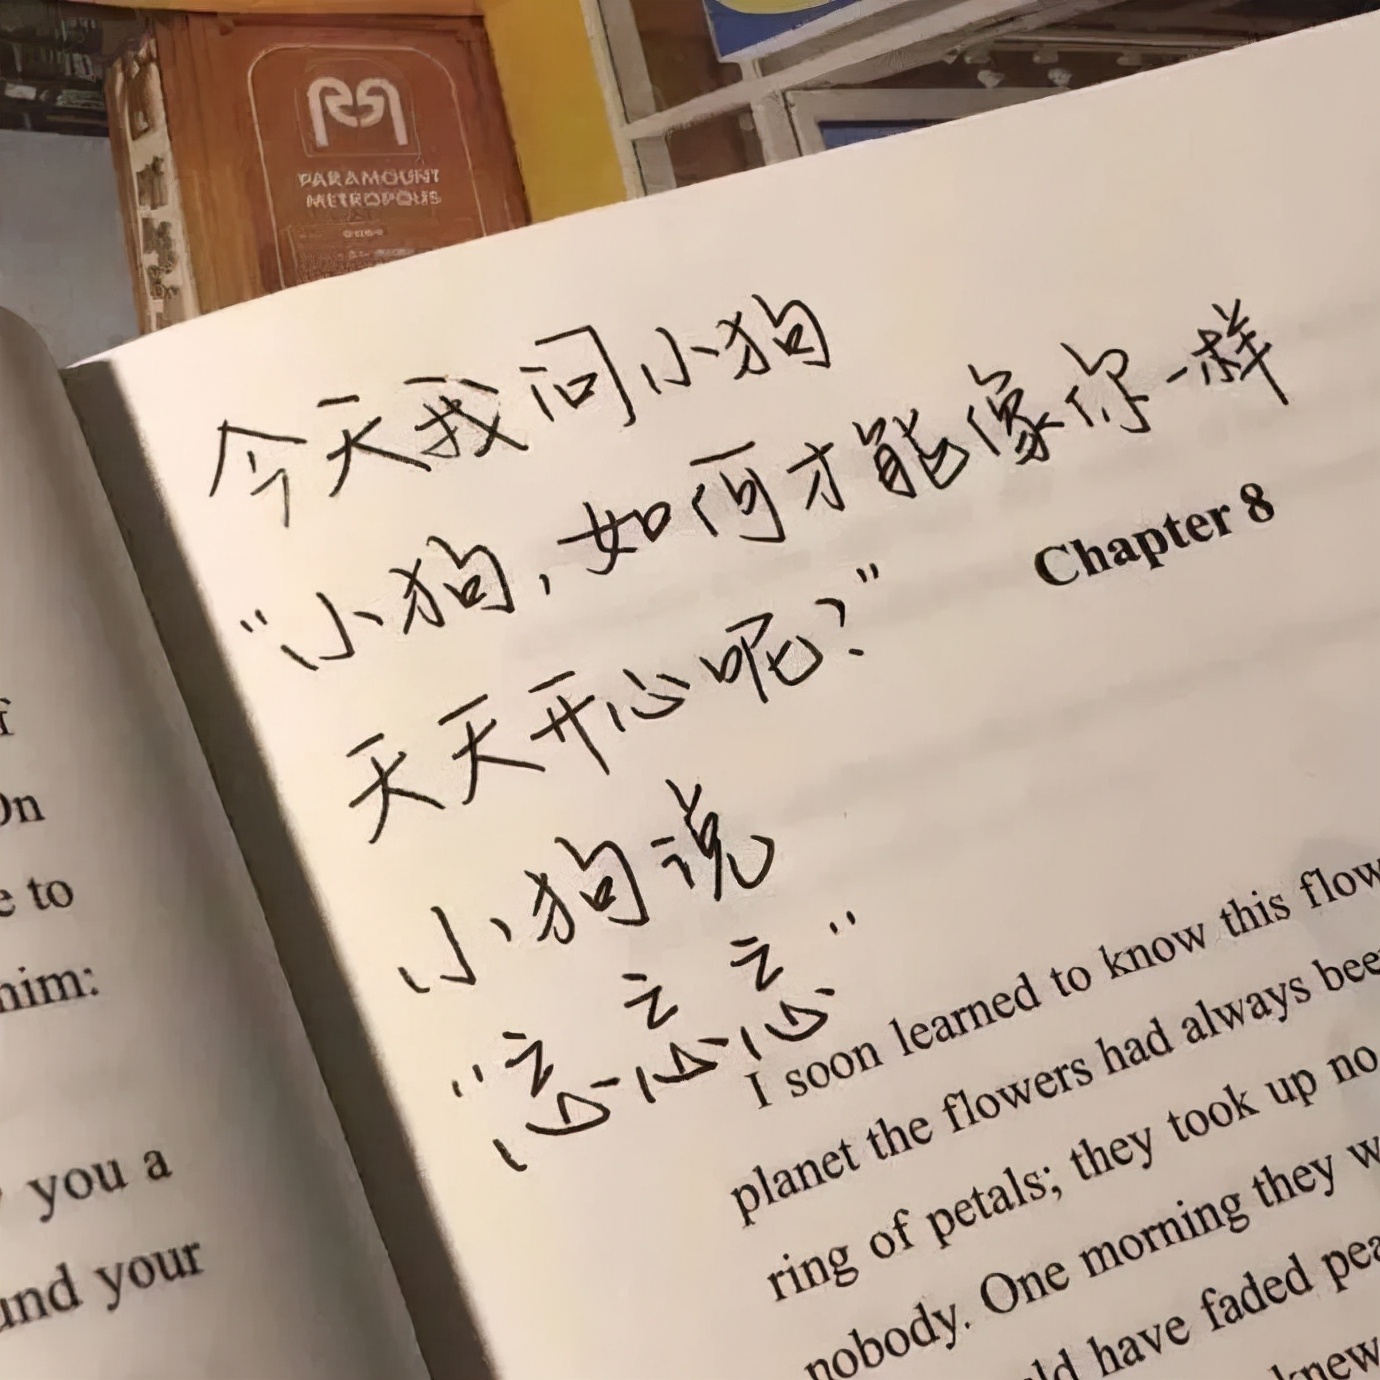 PARAMOUNT
METROPOLIS
今天我问小狗
“小狗,如何才能像你一样
天天开心呢?”
小狗说
Chapter 8
I soon learned to know this flow
planet the flowers had always bee
ring of petals; they took up no
nobody. One morning they w
ld have faded pea
knew
f
On
e to
him:
you a
und your